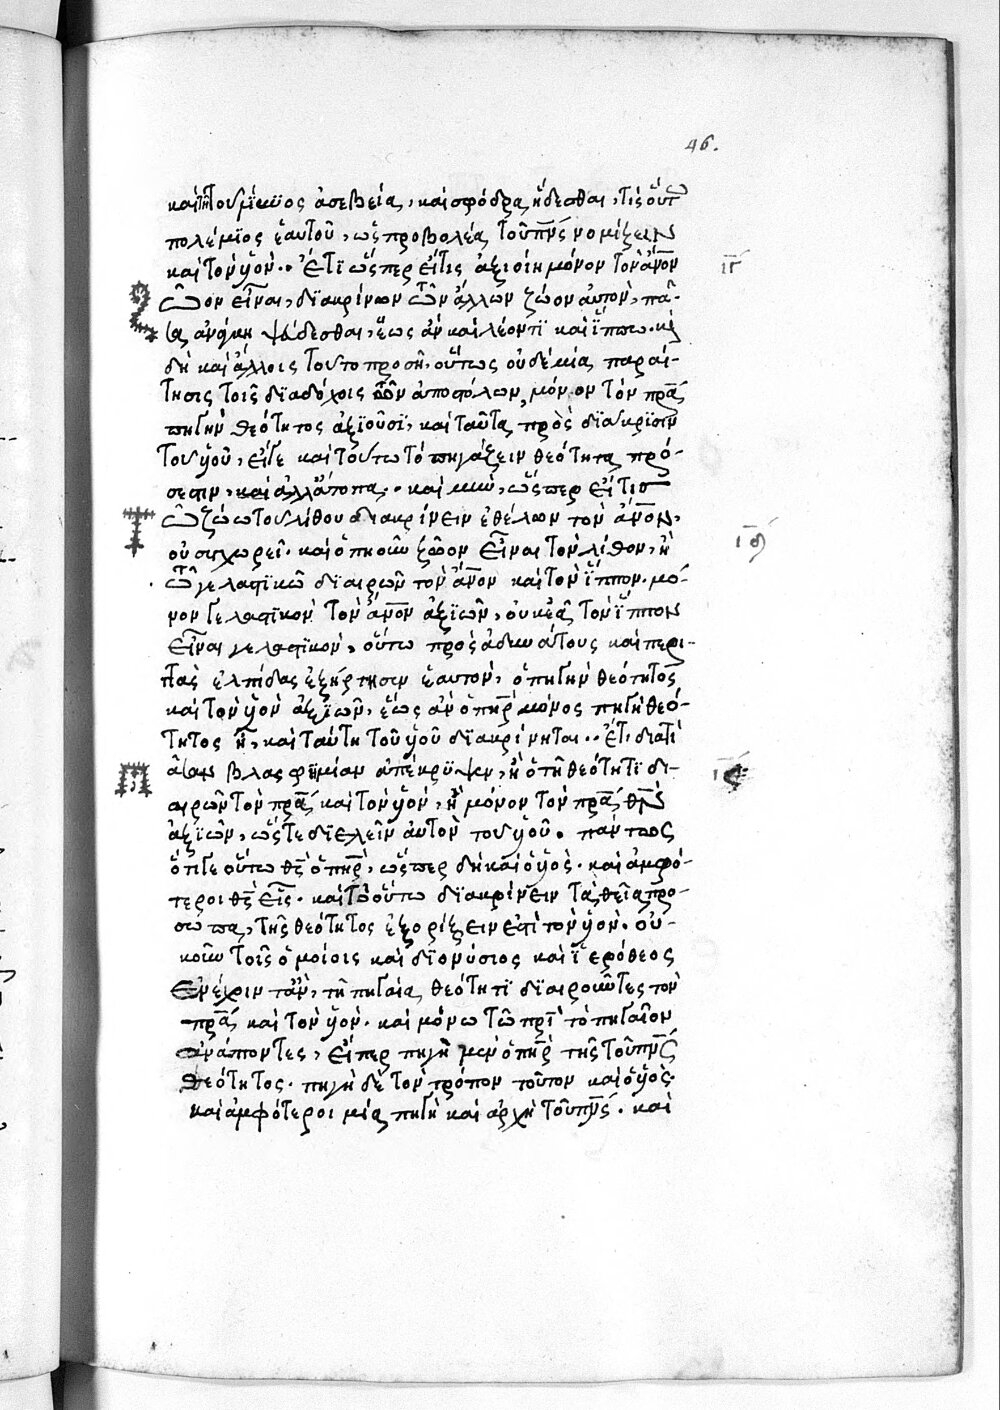 46.
καὶ τῆ τοῦ μίξεως ἀσεβεία, καὶ σφόδρα ἥδεσθαι, τίς οὕτω
πολέμϊος ἑαυτοῦ, ὡς προβολέα τοῦ πν̅ς νομίζειν
καὶ τὸν ὑὸν·· Ἔτϊ ὥσπερ εἴτις ἀξιοίη μόνον τὸν ἄν̅ον
ιγ
ζῶον εἶναι, δϊακρίνων τῶν ἄλλων ζώον αὐτὸν, πᾶ-
σα ἀνάγκη ψεύδεσθαι, ἕως ἂν καὶ λέοντϊ καὶ ἵππω. καὶ
δὴ καὶ ἄλλοις τοῦτο προσῆ, οὕτως οὐδεμία παραί-
τησις τοῖς δϊαδόχοις τῶν ἀποστόλων, μόνον τὸν πρ̅α
πηγὴν θεότητος ἀξϊοῦσϊ, καὶ ταῦτα πρὸς δϊάκρϊσιν
τοῦ ὑοῦ, εἴγε καὶ τούτω τὸ πηγάζειν θεότητα πρό-
σεστιν, καὶ ἀλλ' ἄτοπα·· καὶ μὴν, ὥσπερ εἴτις
τῶ ζώω τοῦ λίθου διακρίνειν ἐθέλων τὸν ἄν̅ον,
ιδ
οὐ συγχωρεῖ. καὶ ὁπηοῦν ζῶον εἶναι τὸν λίθον, ἢ
τῶ γελαστϊκῶ δϊαιρῶν τὸν ἄν̅ον καὶ τὸν ἵππον. μό-
νον γελαστϊκὸν τὸν ἄν̅ον ἀξϊῶν, οὐκ ἐᾶ τὸν ἵππον
εἶναι γελαστϊκὸν, οὕτω πρὸς ἀδυνάτους καὶ περι-
τὰς ἐλπίδας ἐξήρτησιν ἑαυτὸν, ὁ πηγὴν θεότητος
καὶ τὸν ὑὸν ἀξϊῶν, ἕως ἂν ὁ πηρ̅ μόνος πηγὴ θεό-
τητος ἦ, καὶ ταύτη τοῦ ὑοῦ δϊακρίνηται·· Ἔτι διατὶ
πᾶσαν βλασφημίαν ἀπέκρϋψεν, ἢ ὁ τῆ θεότητϊ δι-
ιε
αιρῶν τὸν πρ̅α καὶ τὸν ὑὸν, ἢ μόνον τὸν πρ̅α θν̅
ἀξϊῶν, ὥστε δϊελεῖν αὐτὸν τοῦ ὑοῦ. πάντως
ὅτιγε οὕτω θς̅ ὁ πηρ̅, ὥσπερ δὴ καὶ ὁ ὑὸς. καὶ ἀμφό-
τεροι θς̅ εἷς. καὶ τὸ οὕτω δϊακρίνειν τὰ θεῖα πρό-
σωπα, τῆς θεότητος ἐξορίζειν ἐστὶ τὸν ὑὸν. οὐ-
κοῦν τοῖς ὁμοίοις καὶ διονύσιος καὶ ἱερόθεος
ἐνέχοιντ' ἂν, τῆ πηγαία θεότητϊ δϊαιροῦντες τὸν
πρ̅α καὶ τὸν ὑὸν. καὶ μόνω τῶ πρϊ̅ τὸ πηγαῖον
ἀνάπτοντες, εἴπερ πηγὴ μὲν ὁ πηρ̅ τῆς τοῦ πν̅ς
θεότητος. πηγὴ δὲ τὸν τρόπον τοῦτον καὶ ὁ ὑὸς.
καὶ ἀμφότεροι μία πηγὴ καὶ ἀρχὴ τοῦ πν̅ς. καὶ